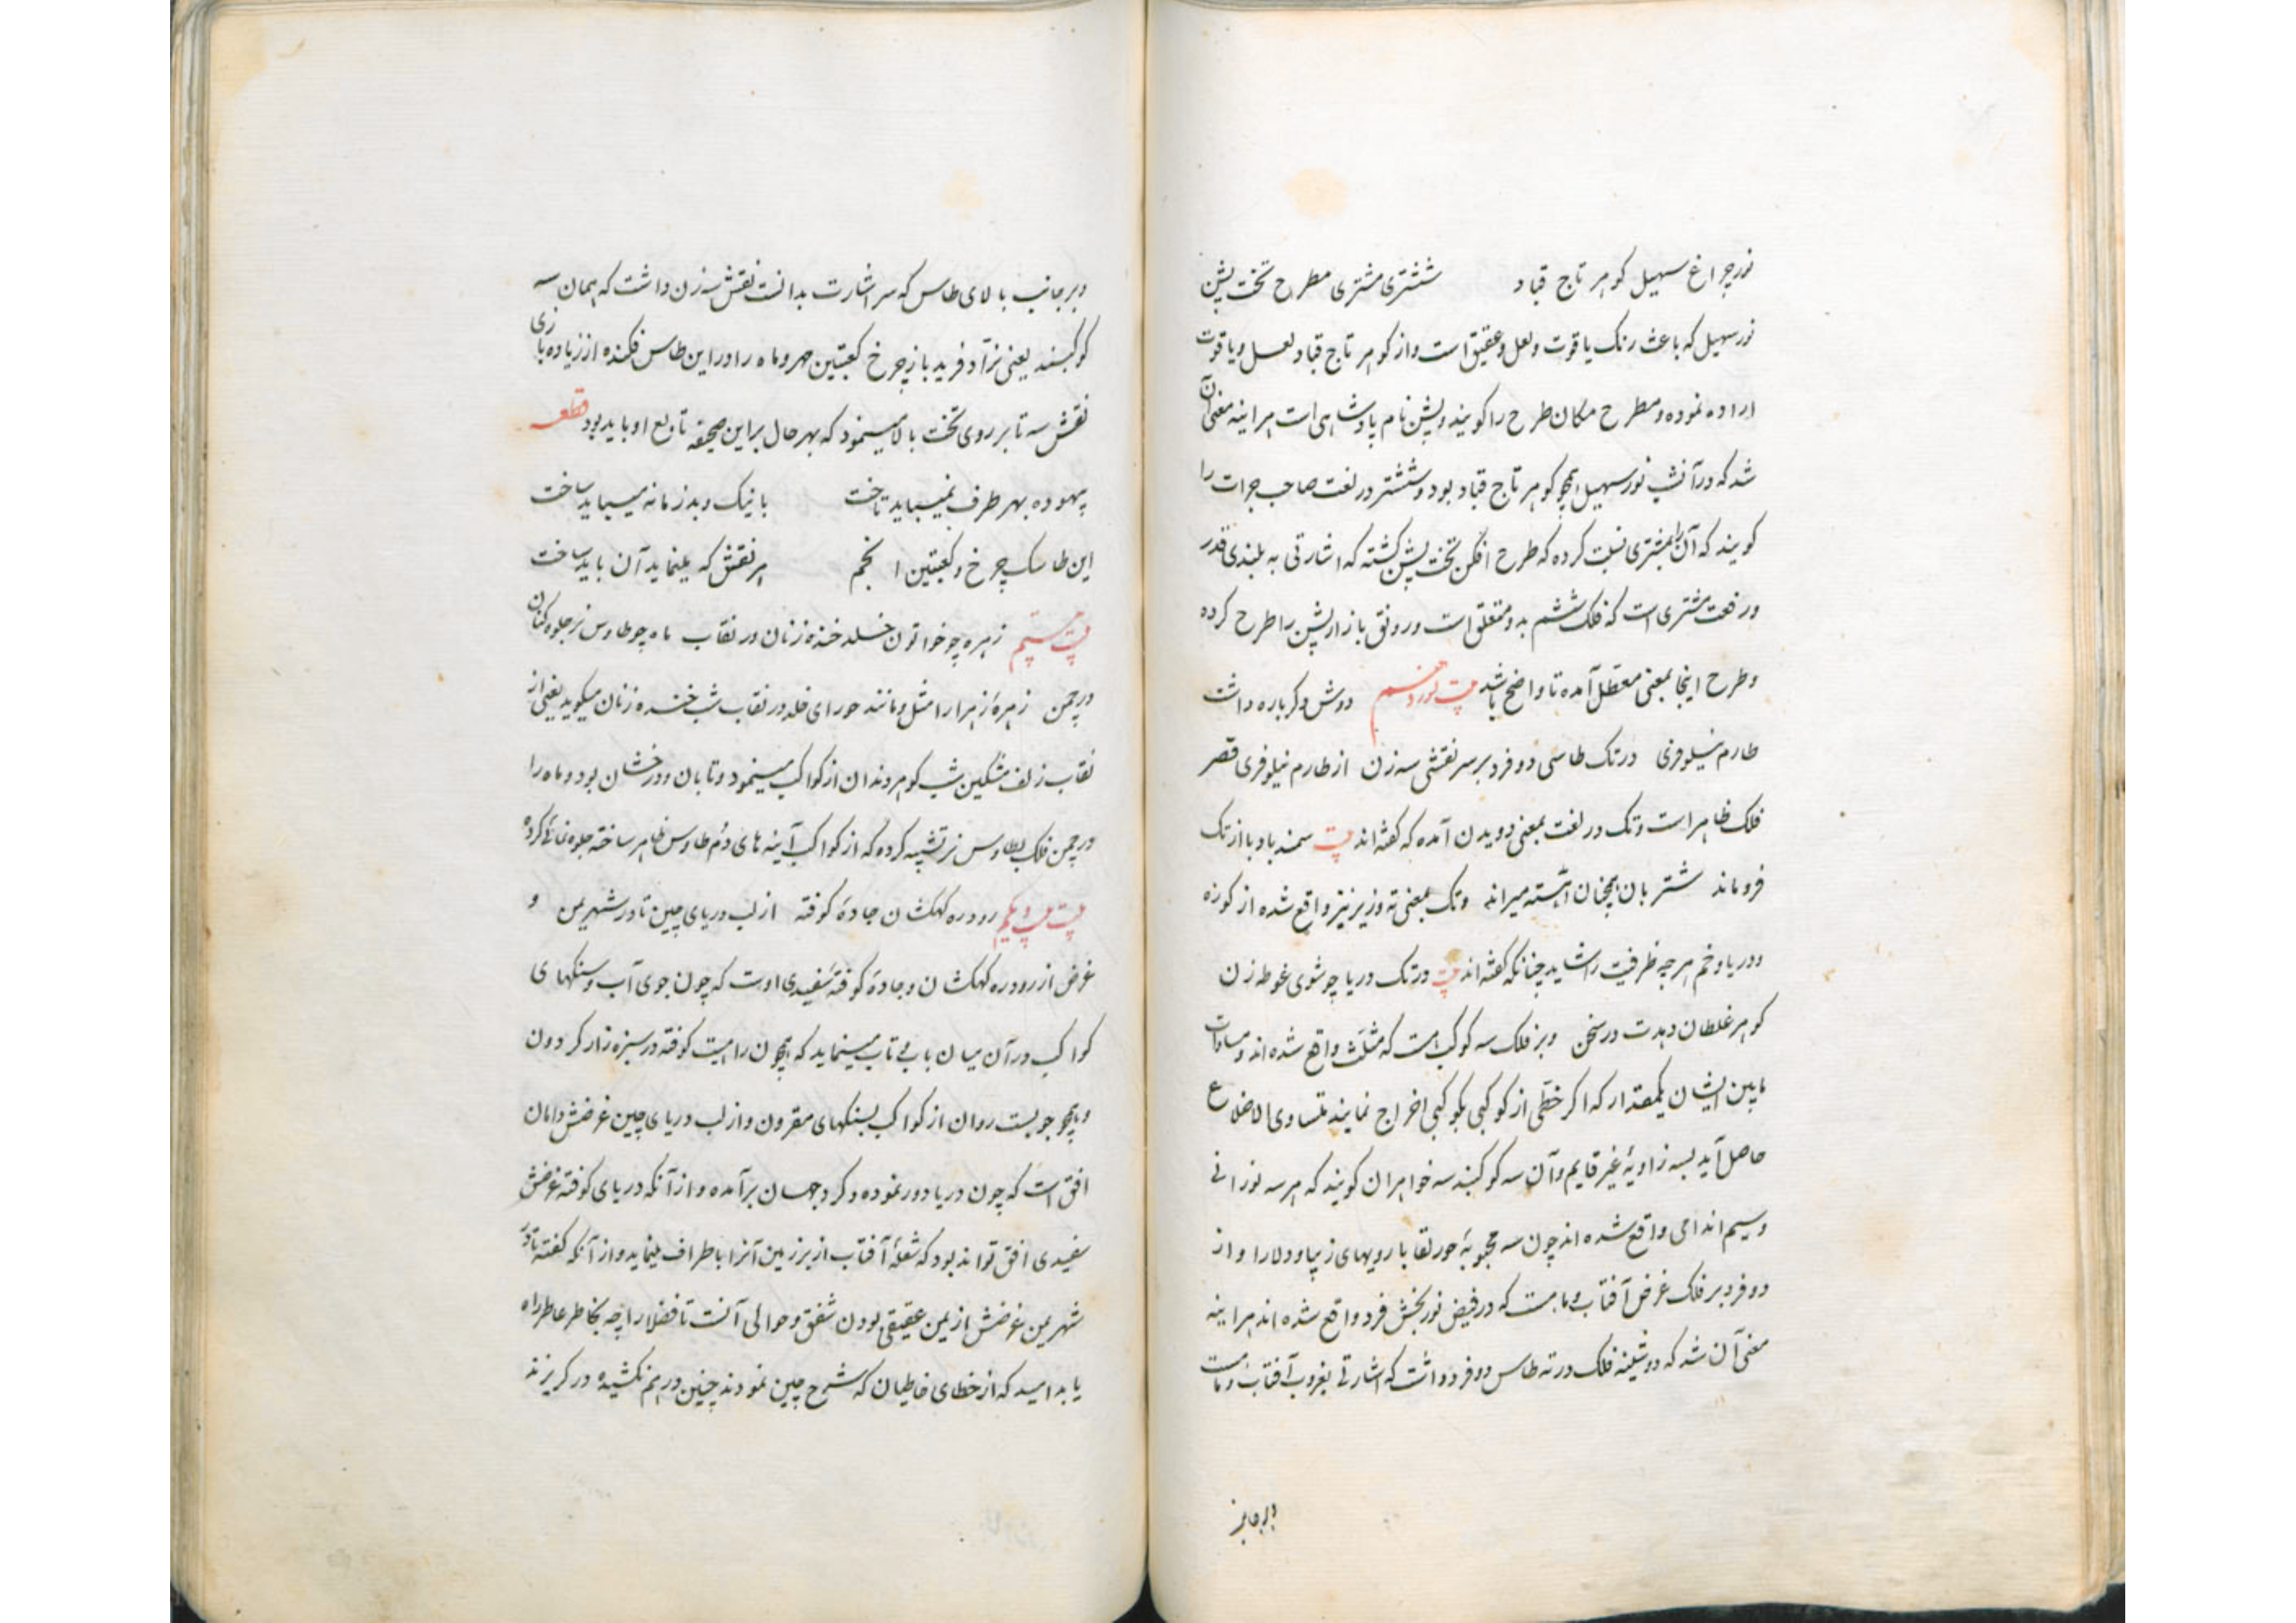 نور چراغ سهیل گوهر تاج قباد ششتری مشتری مطرح تخت پشن
نور سهیل که باعث رنک یاقوت ولعل وعقیق است واز کوهر تاج قباد لعل ویاقوت
اراده نموده ومطرح مکان طرح را کویند وپشن نام پادشاهی است هر اینه معنی آن
شد که در آنشب نور سهیل همچو کوهر تاج قباد بود وششتر در لغت صاحب جرات را
کویند که آن را بمشتری نسبت کرده که طرح افکن تخت پشن کشته که اشارتی به بلندی قدر
ورفعت مشتری است که فلک ششم بدو متعلق است ورونق بازار پشن را طرح کرده
وطرح اینجا بمعنی معطل آمده تا واضح باشد بیت نوزدهم دوش دکر باره داشت
طارم نیلوفری در تک طاسی دو فرد بر سر نقشی سه زن از طارم نیلوفری قصر
فلک ظاهر است وتک در لغت بمعنی دویدن آمده که کفته‌اند بیت سمند باد پا از تک
فروماند شتربان همچنان اهسته میراند وتک بمعنی ته وزیر نیز واقع شده از کوزه
ودریا وخم هر چه ظرفیت را شاید چنانکه کفته‌اند بیت در تک دریا چو شوی غوطه زن
کوهر غلطان دهدت در سخن وبر فلک سه کوکب است که مثلث واقع شده‌اند ومساوات
مابین ایشان یکمقدار که اکر خطی از کوکبی بکوکبی اخراج نمایند متساوی الاضلاع
حاصل آید بسه زاویهٔ غیر قایم وآن سه کوکبند سه خواهران کویند که هر سه نورانی
وسیم اندامی واقع شده‌اند چون سه محبوبهٔ حور لقا با رویهای زیبا ودلارا واز
دو فرد بر فلک غرض آفتاب وماهست که در فیض نور بخش فرد واقع شده‌اند هر اینه
معنی آن شد که دوشینه فلک در ته طاس دو فرد داشت که اشارتی بغروب آفتاب وماه است
وبر جانب
وبر جانب بالای طاس که سر اشارت بدانست نقش سه زن داشت که همان سه
کوکبند یعنی نرآد فرید باز چرخ کعبتین مهر وماه را در این طاس فکنده از زیاده بازی
نقش سه تا بر روی تخت بالا مینمود که بهر حال براین صحیفه تابع او باید بود قطعه
بیهوده بهر طرف نمیباید تاخت با نیک وبد زمانه میباید ساخت
این طاسک چرخ وکعبتین انجم هر نقش که مینماید آن باید ساخت
بیت بیستم زهره چو خواتون خلد خنده زنان در نقاب ماه چو طاوس نر جلوه کنان
در چمن زهرهٔ زهرا را مثل ومانند حورای خلد در نقاب شب خنده زنان میکوید یعنی از
نقاب زلف مشکین شب کوهر دندان از کواکب مینمود وتابان ودرخشان بود وماه را
در چمن فلک بطاوس نر تشبیه کرده که از کواکب آینه های دم طاوس ظاهر ساخته جلوه نمائی کرده
بیت بیست ویکم رودره کهکشان جادهٔ کوفته از لب دریای چین تا در شهر یمن و
غرض از رودره کهکشان وجادهٔ کوفته سفیدی اوست که چون جوی آب وسنکهای
کواکب در آن میان با بی تاب مینماید که همچون راهیست کوفته در سبزه زار کردون
وهمچو جویست روان از کواکب بسنکهای مقرون واز لب دریای چین غرضش دامان
افق است که چون دریا دور نموده وکرد جهان برآمده واز آنکه دریای کوفته غرضش
سفیدی افق تواند بود که شعلهٔ آفتاب از بر زمین آنرا باطراف مینماید واز آنکه کفته تا در
شهر یمن غرضش از یمن عقیقی بودن شفق وحوالی آنست تا فضلا را چه بخاطر عاطر راه
یابد امید که از خطای خاطیان که شرح چین نمودند چنین در هم نکشیده در کریزند